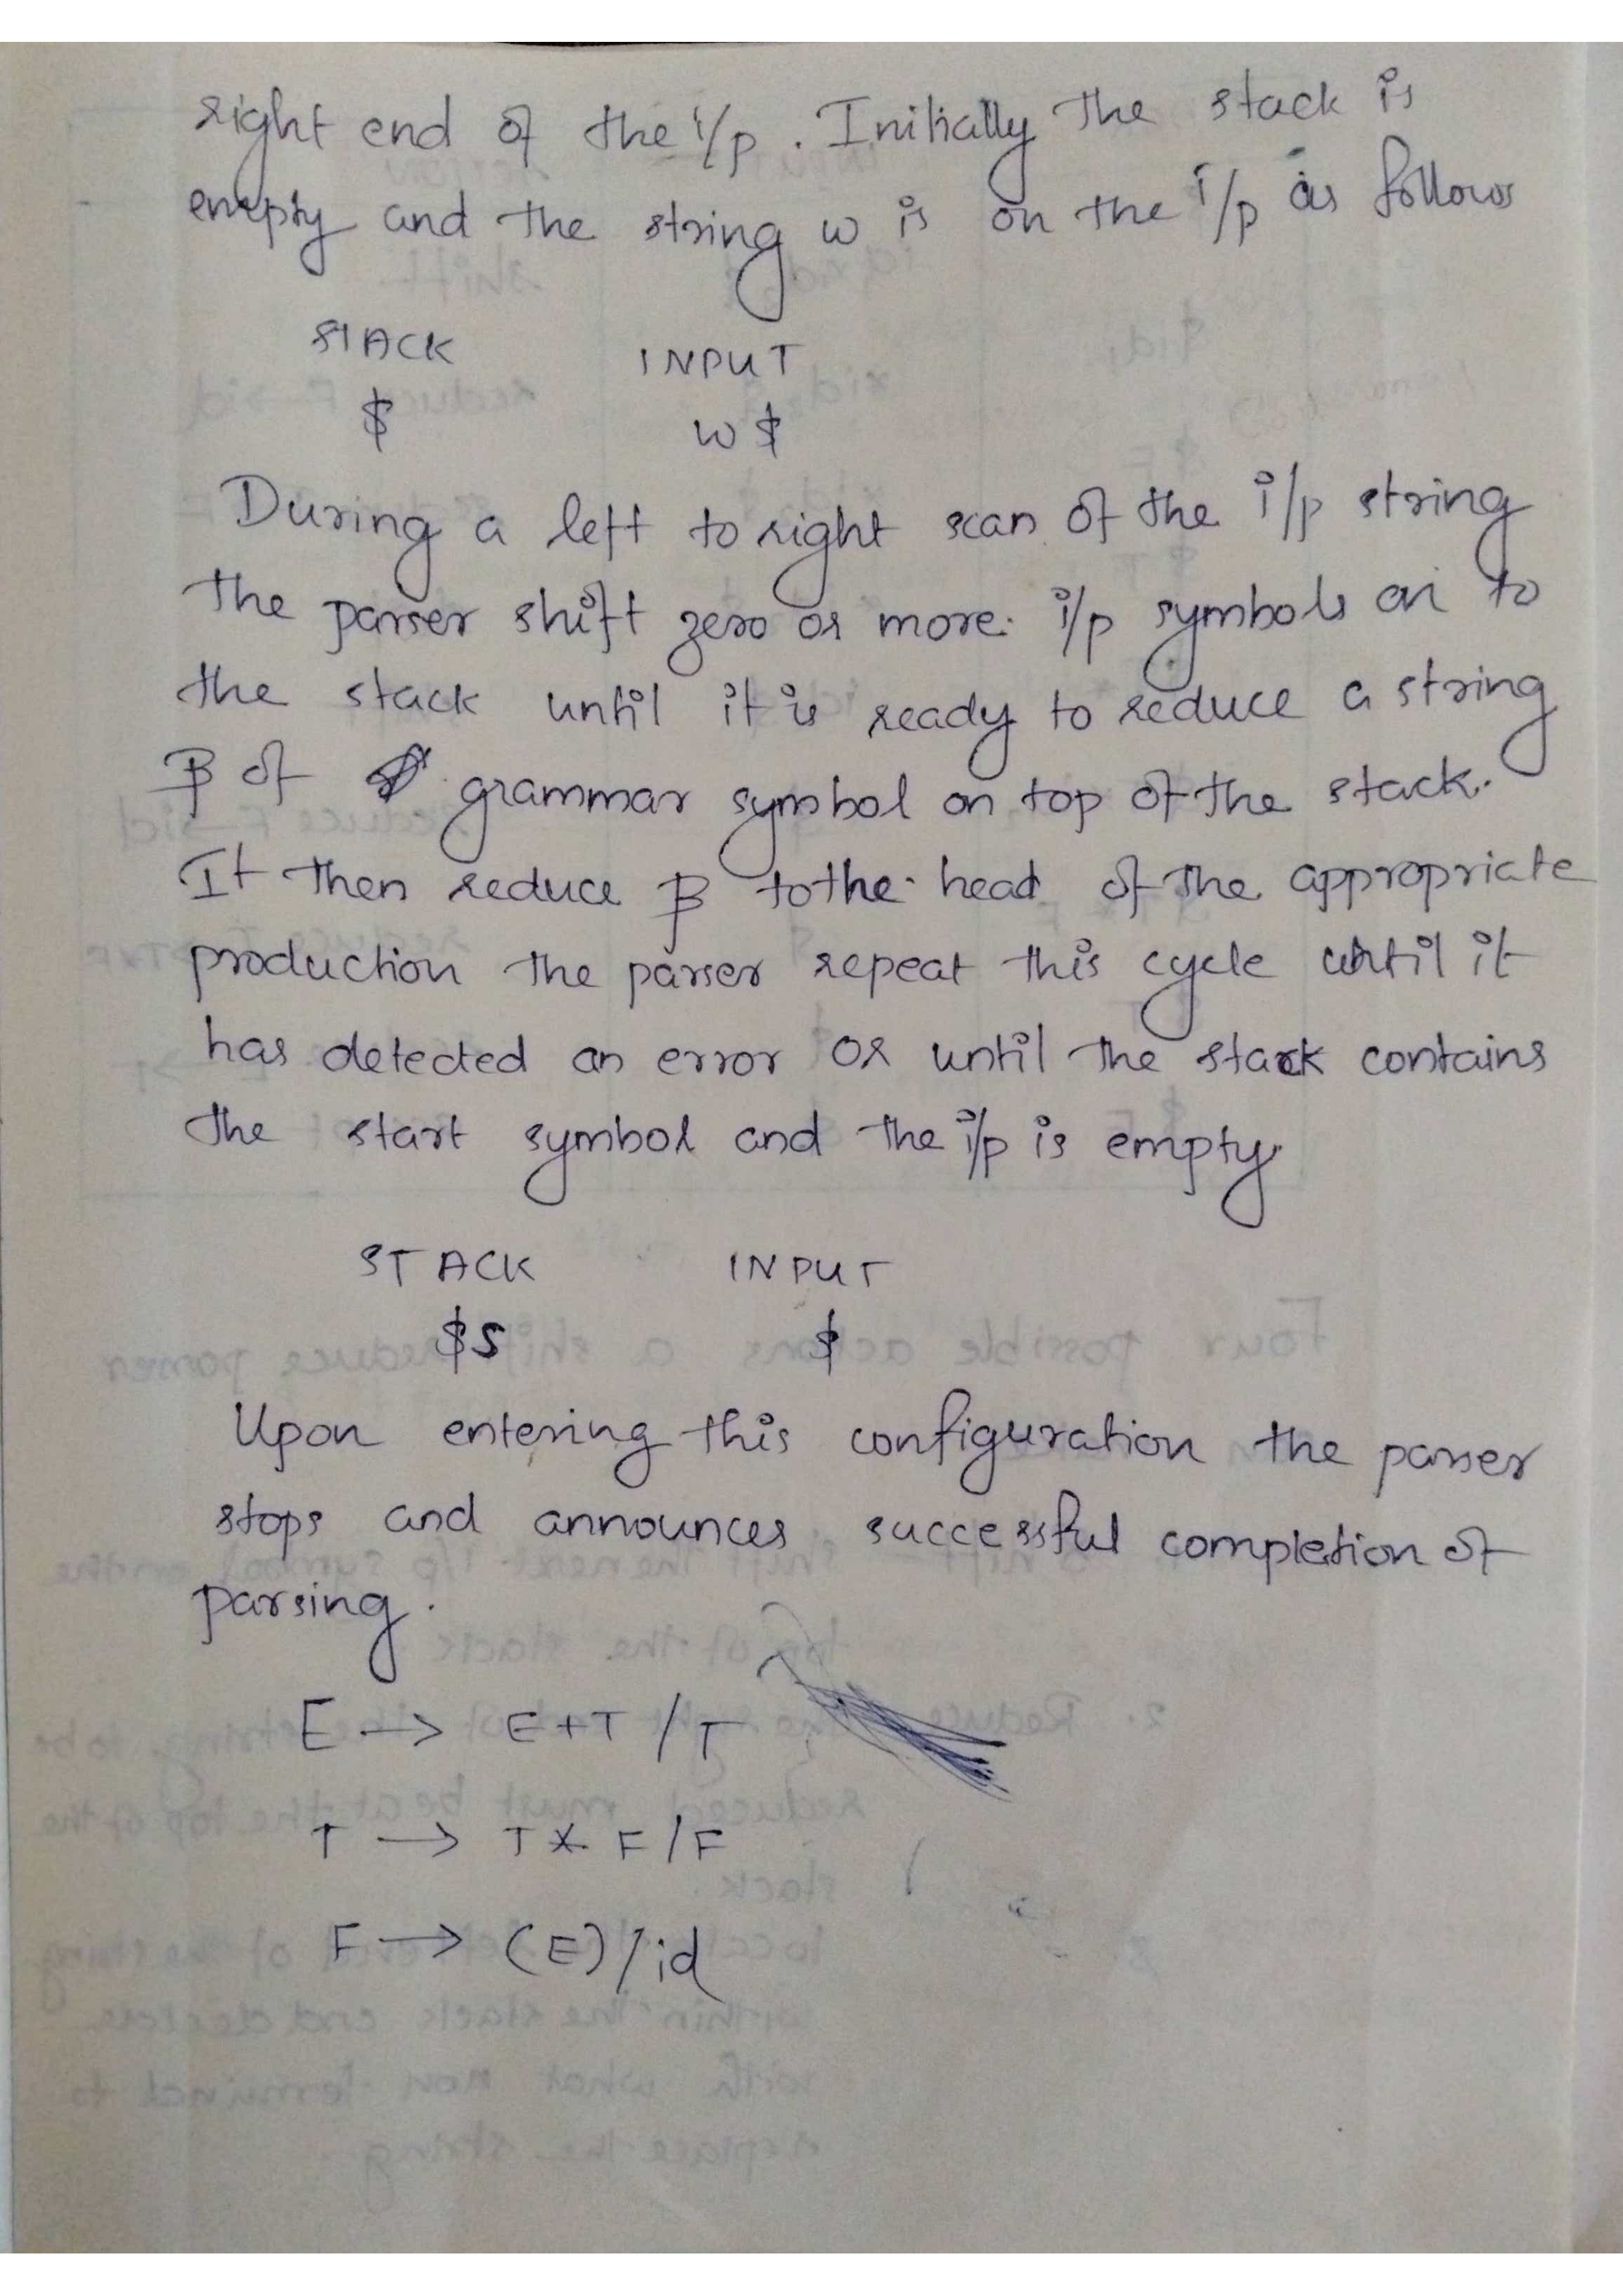 right end of the i/p. Initially the stack is
empty and the string w is on the i/p as follows
STACK INPUT
$ w$
During a left to right scan of the i/p string
the parser shift zero or more i/p symbols on to
the stack until it is ready to reduce a string
β of grammar symbol on top of the stack.
It then reduce β to the head of the appropriate
production the parser repeat this cycle until it
has detected an error or until the stack contains
the start symbol and the i/p is empty.
STACK INPUT
$S $
Upon entering this configuration the parser
stops and announces successful completion of
parsing.
E → E+T / T
T → T * F / F
F → (E) / id